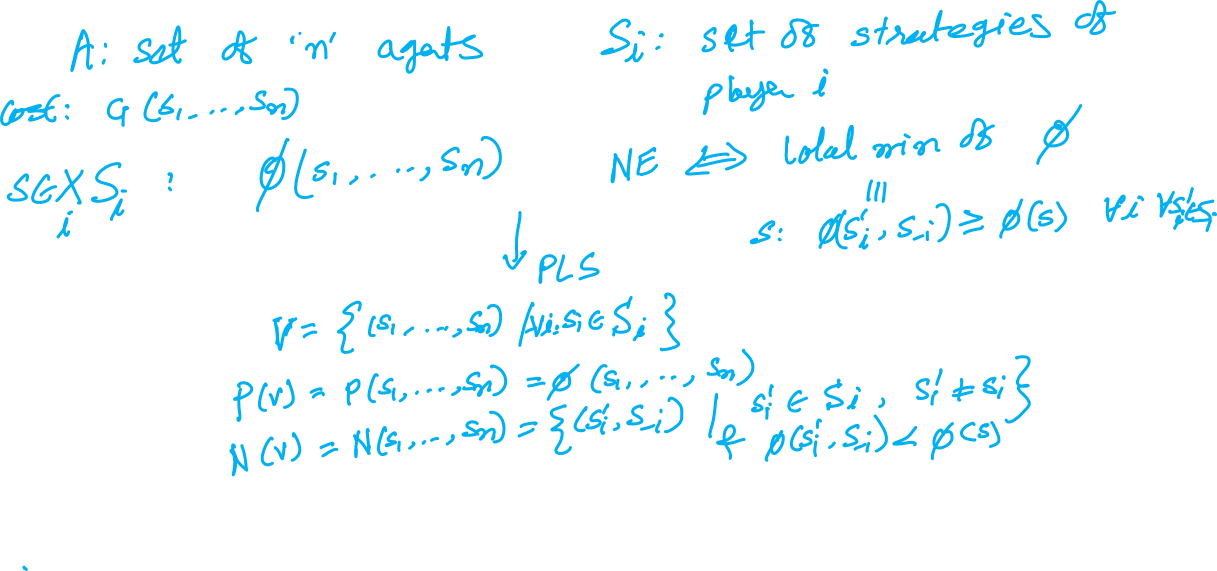 A: set of 'n' agents
S_i: set of strategies of
player i
cost: C_i(s_1, ..., s_n)
s ∈ X_i S_i : ϕ(s_1, ..., s_n)
NE ⟺ local min of ϕ
|||
s: ϕ(s_i', s_-i) ≥ ϕ(s) ∀i ∀s_i' ∈ S_i
↓ PLS
V = {(s_1, ..., s_n) / ∀i, s_i ∈ S_i}
P(v) = P(s_1, ..., s_n) = ϕ(s_1, ..., s_n)
N(v) = N(s_1, ..., s_n) = {(s_i', s_-i) | s_i' ∈ S_i, s_i' ≠ s_i}
& ϕ(s_i', s_-i) < ϕ(s)